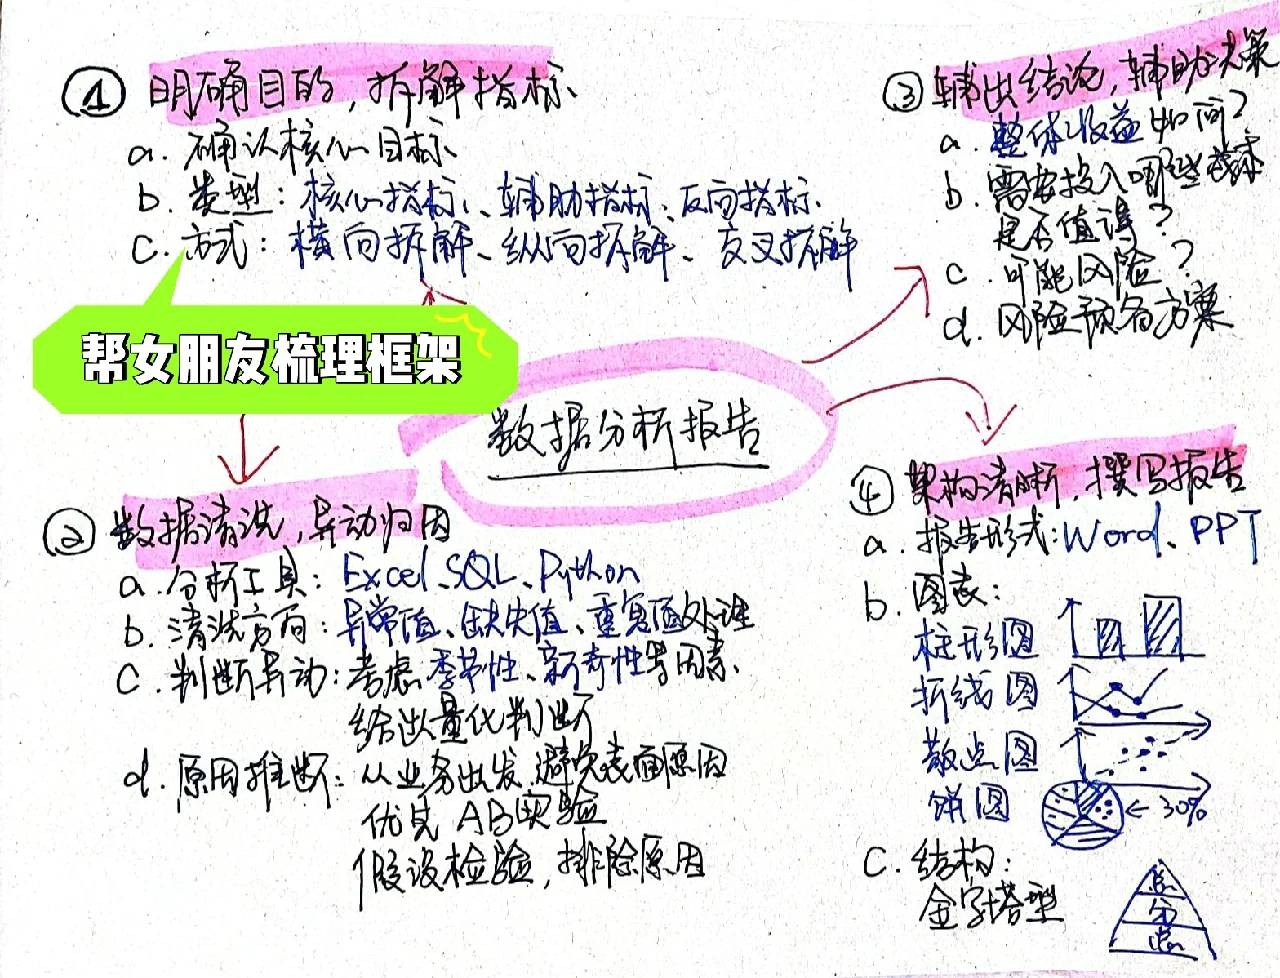 ① 明确目的，拆解指标
a. 确认核心目标
b. 类型：核心指标、辅助指标、反向指标
c. 方式：横向拆解、纵向拆解、交叉拆解
帮女朋友梳理框架
数据分析报告
② 数据清洗，异动归因
a. 分析工具：Excel、SQL、Python
b. 清洗方向：异常值、缺失值、重复值处理
c. 判断异动：考虑季节性、新奇性等因素、
给出量化判断
d. 原因推断：从业务出发，避免表面原因
优其 AB实验
假设检验，排除原因
③ 辅出结论，辅助决策
a. 整体收益如何？
b. 需要投入哪些成本
是否值得？
c. 可能风险？
d. 风险预备方案
④ 架构清晰，撰写报告
a. 报告形式：Word、PPT
b. 图表：
柱形图
折线图
散点图
饼图
← 30%
c. 结构：
金字塔型
总
分